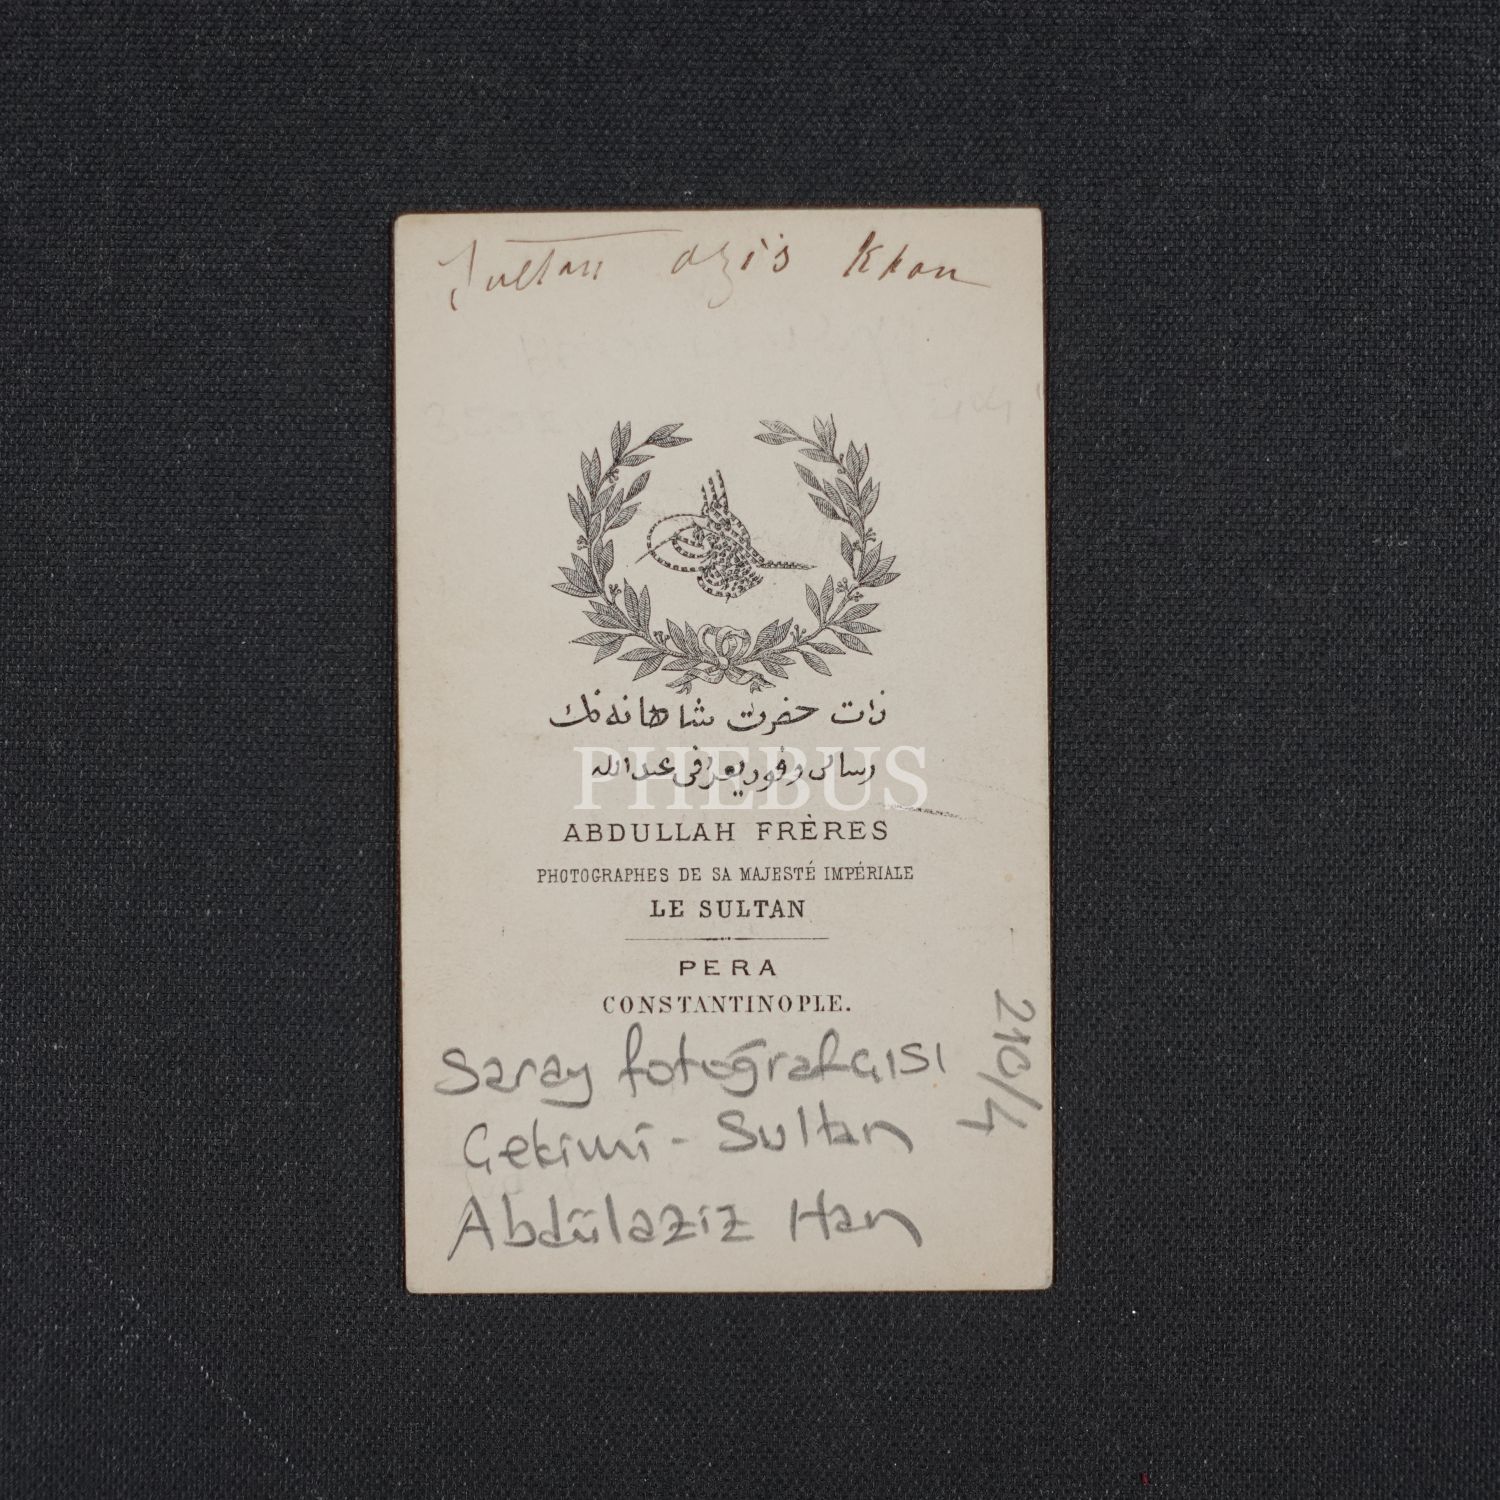 Sultan Azis Khan
ذات حضرت شاهانه نك
رسامى وفوتوغرافى عبدالله
PHEBUS
ABDULLAH FRÈRES
PHOTOGRAPHES DE SA MAJESTÉ IMPÉRIALE
LE SULTAN
PERA
CONSTANTINOPLE.
Saray fotoğrafçısı
Çekimi - Sultan
Abdülaziz Han
210/4